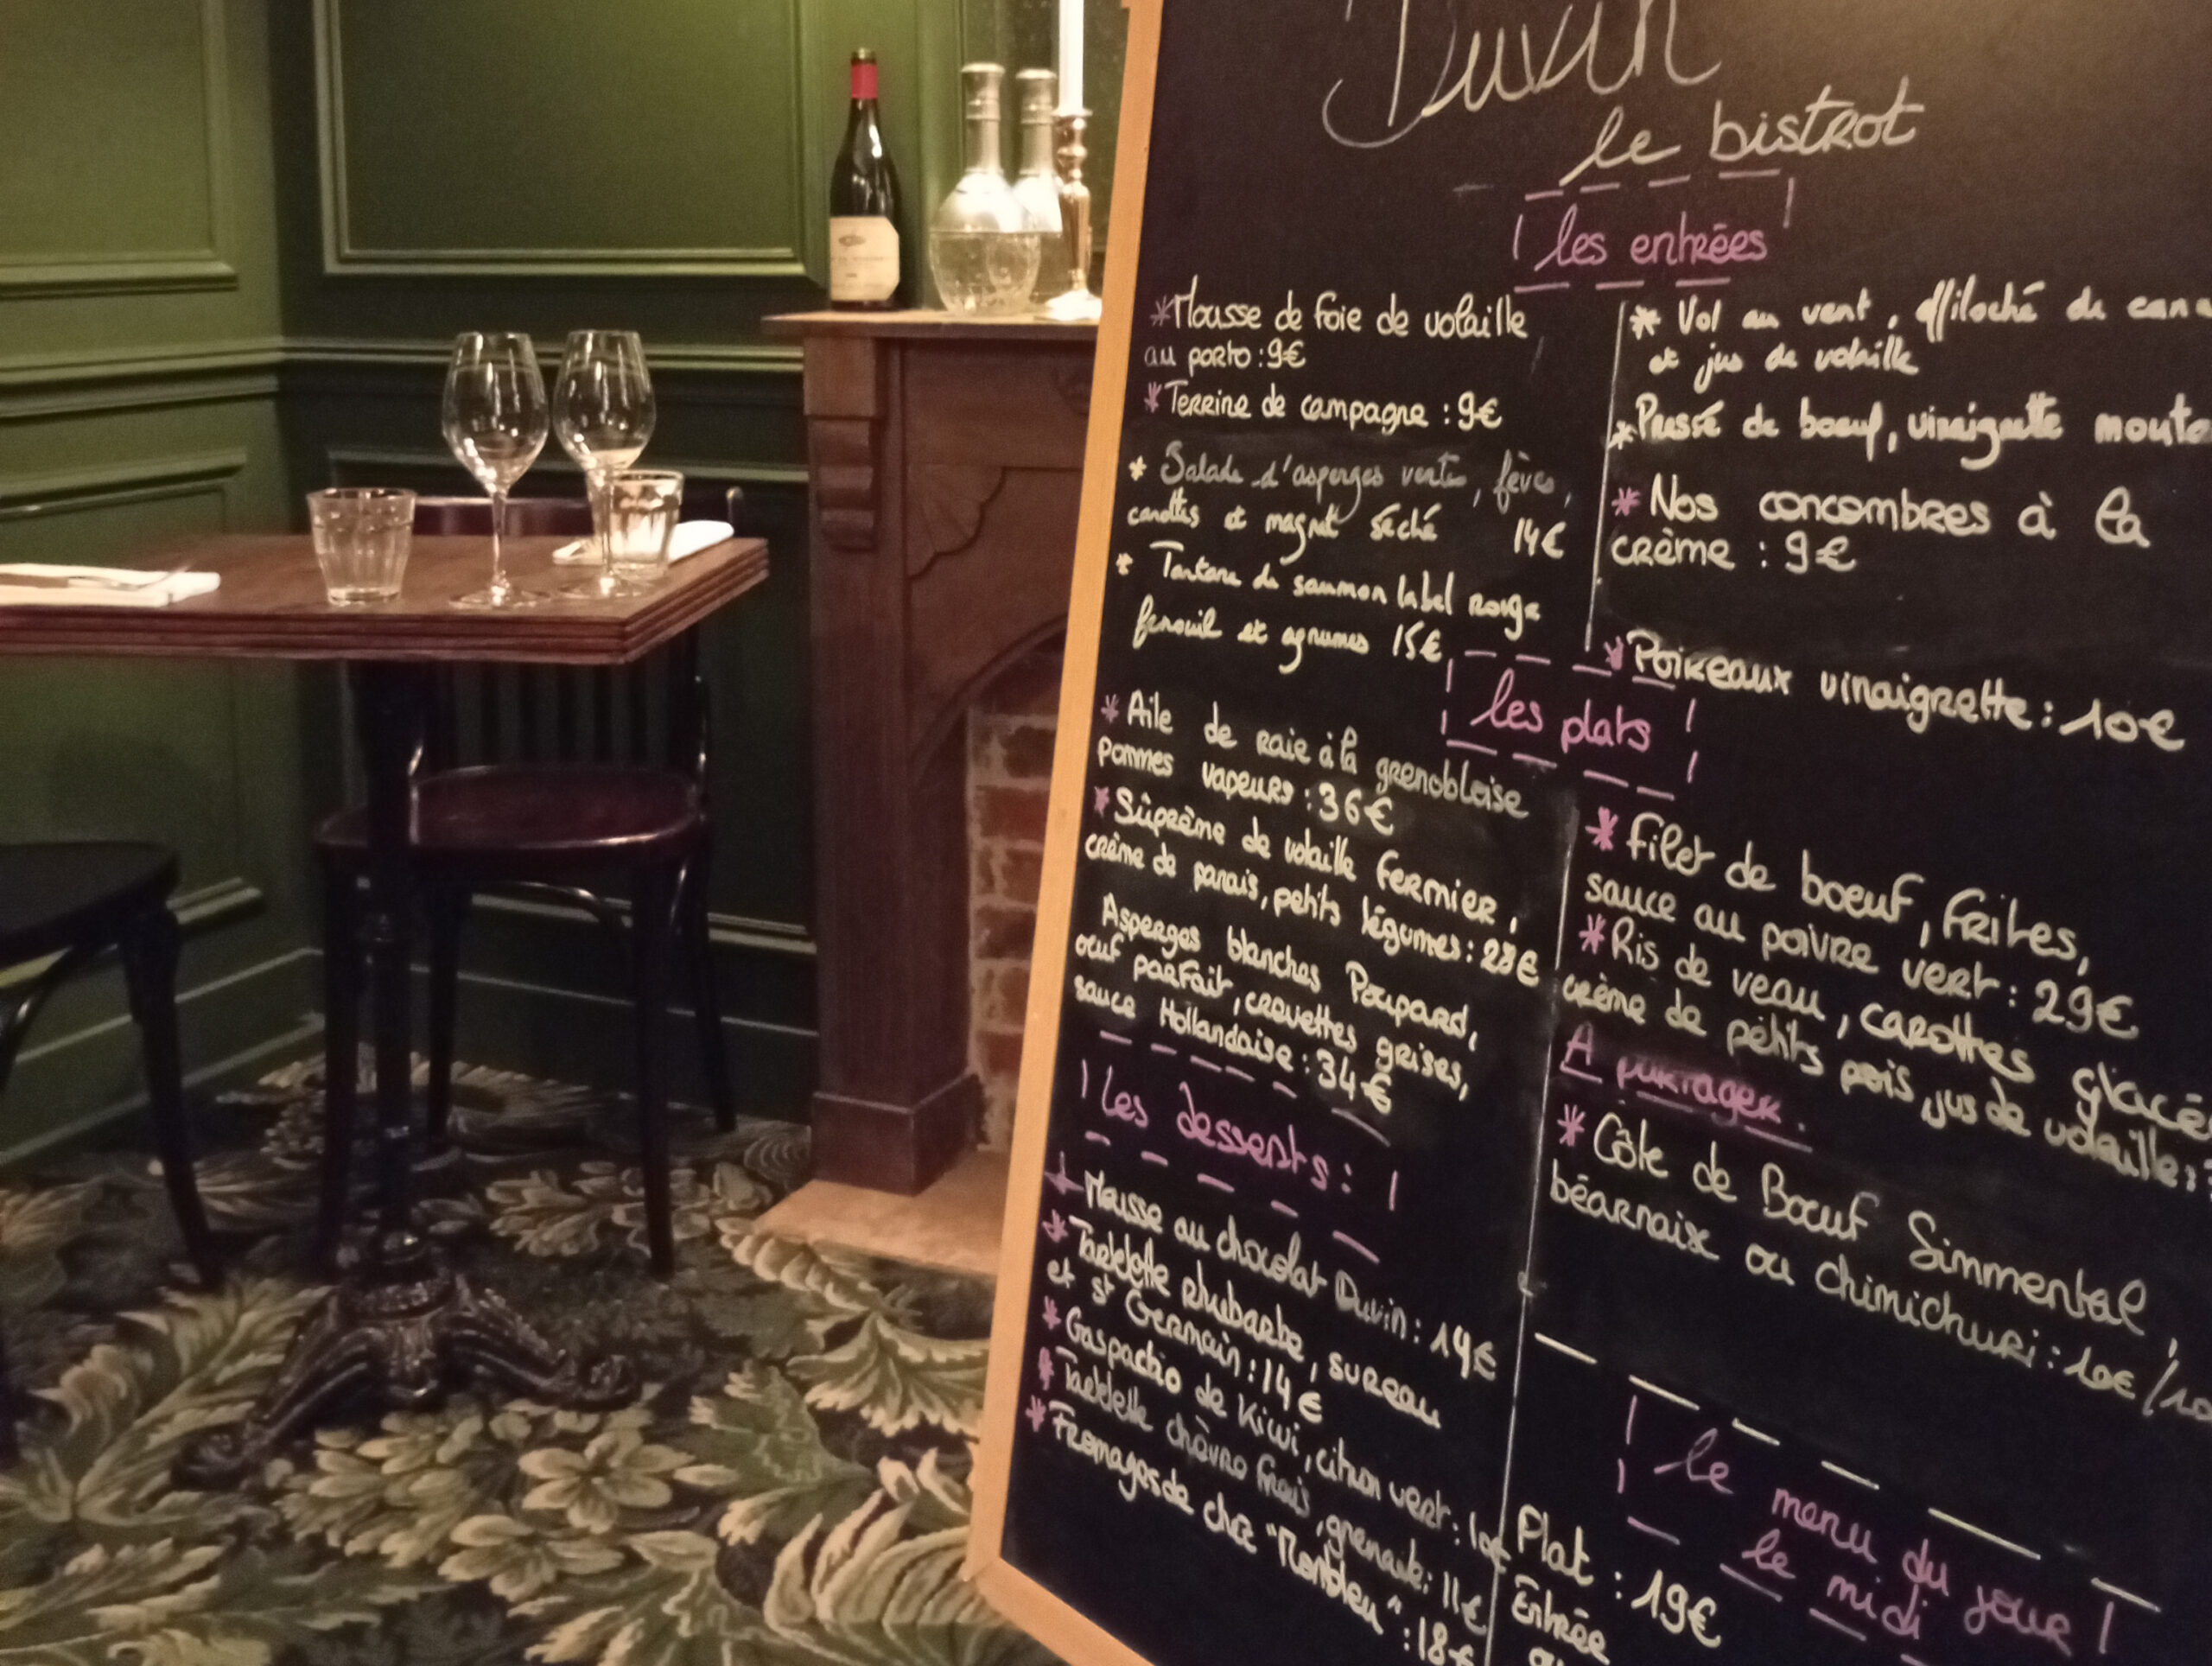 Duvin
le bistrot
les entrées
*Mousse de foie de volaille
au porto : 9€
*Terrine de campagne : 9€
* Salade d'asperges vertes, fèves,
carottes et magret séché 14€
* Tartare de saumon label rouge
fenouil et agrumes 15€
* Vol au vent, effiloché de
et jus de volaille
*Pressé de boeuf, vinaigrette
*Nos concombres à la
crème : 9€
*Poireaux vinaigrette : 10€
les plats
*Aile de raie à la grenobloise
pommes vapeurs : 36€
*Suprème de volaille fermier,
crème de panais, petits légumes : 28€
Asperges blanches Poupard,
oeuf parfait, crevettes grises,
sauce Hollandaise : 34€
*Filet de boeuf, frites,
sauce au poivre vert : 29€
*Ris de veau, carottes
crème de petits pois, jus de volaille :
A partager.
*Côte de Boeuf Simmental,
béarnaise ou chimichuri : 10€ /
les desserts :
*Mousse au chocolat Duvin : 14€
*Tartelette rhubarbe, sureau
et st Germain : 14€
*Gaspacho de kiwi, citron vert : 10€
*Tartelette chèvre frais, grenade : 11€
*Fromages de chez "Monbleu" : 18€
le menu du jour
le midi
Plat : 19€
Entrée